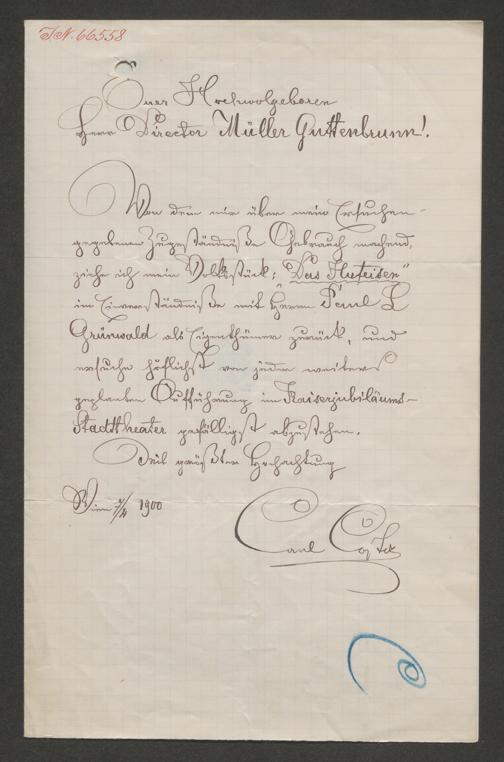 I.N. 66558
Euer Hochwolgeboren
Herr Director Müller Guttenbrunn!
Von dem mir über mein Ersuchen
gegebenen Zugeständniße Gebrauch machend,
ziehe ich mein Volksstück: "Das Hufeisen"
im Einverständniße mit Herrn Paul L
Grünwald als Eigenthümer zurück, und
ersuche höflichst von jeder weiters
geplanten Aufführung im Kaiserjubiläums-
Stadttheater gefälligst abzustehen.
Mit größter Hochachtung
Wien 1900
Carl